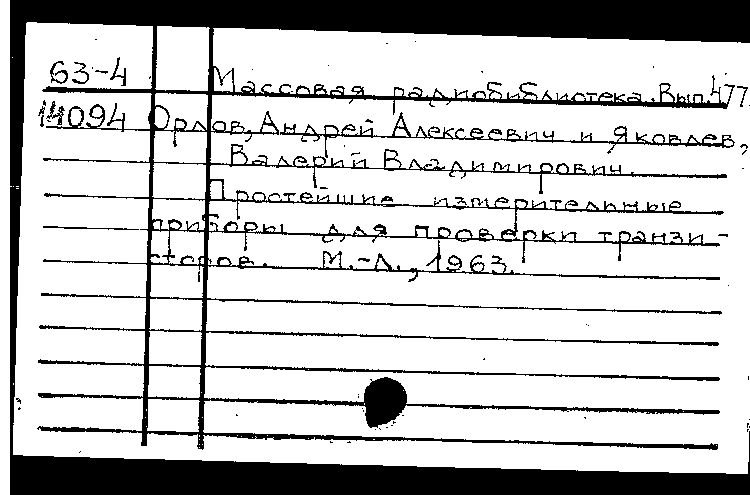 63-4 Массовая радиобиблиотека. Вып. 477
14094 Орлов, Андрей Алексеевич и Яковлев,
Валерий Владимирович.
Простейшие измерительные
приборы для проверки транзи-
сторов. М.-Л., 1963.